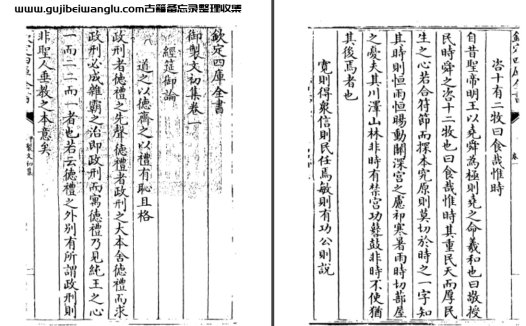 www.gujibeiwanglu.com古籍备忘录整理收集
欽定四庫全書
御製文初集卷一
經筵御論
道之以德齊之以禮有恥且格
政刑者德禮之先聲德禮者政刑之大本舍德禮而求
政刑必成雜霸之治即政刑而寓德禮乃見純王之心
一而二二而一者也若云德禮之外別有所謂政刑則
非聖人垂教之本意矣
咨十有二牧曰食哉惟時
自昔聖帝明王以堯舜為極則堯之命羲和也曰敬授
民時舜之咨十二牧也曰食哉惟時其重民天而厚民
生之心若合符節而探本究原則莫切於時之一字知
其時則恒雨恒暘動關深宮之慮祁寒暑雨時切蔀屋
之憂夫其川澤山林非時有禁宮功鼛鼓非時不使猶
其後焉者也
寬則得衆信則民任焉敏則有功公則說